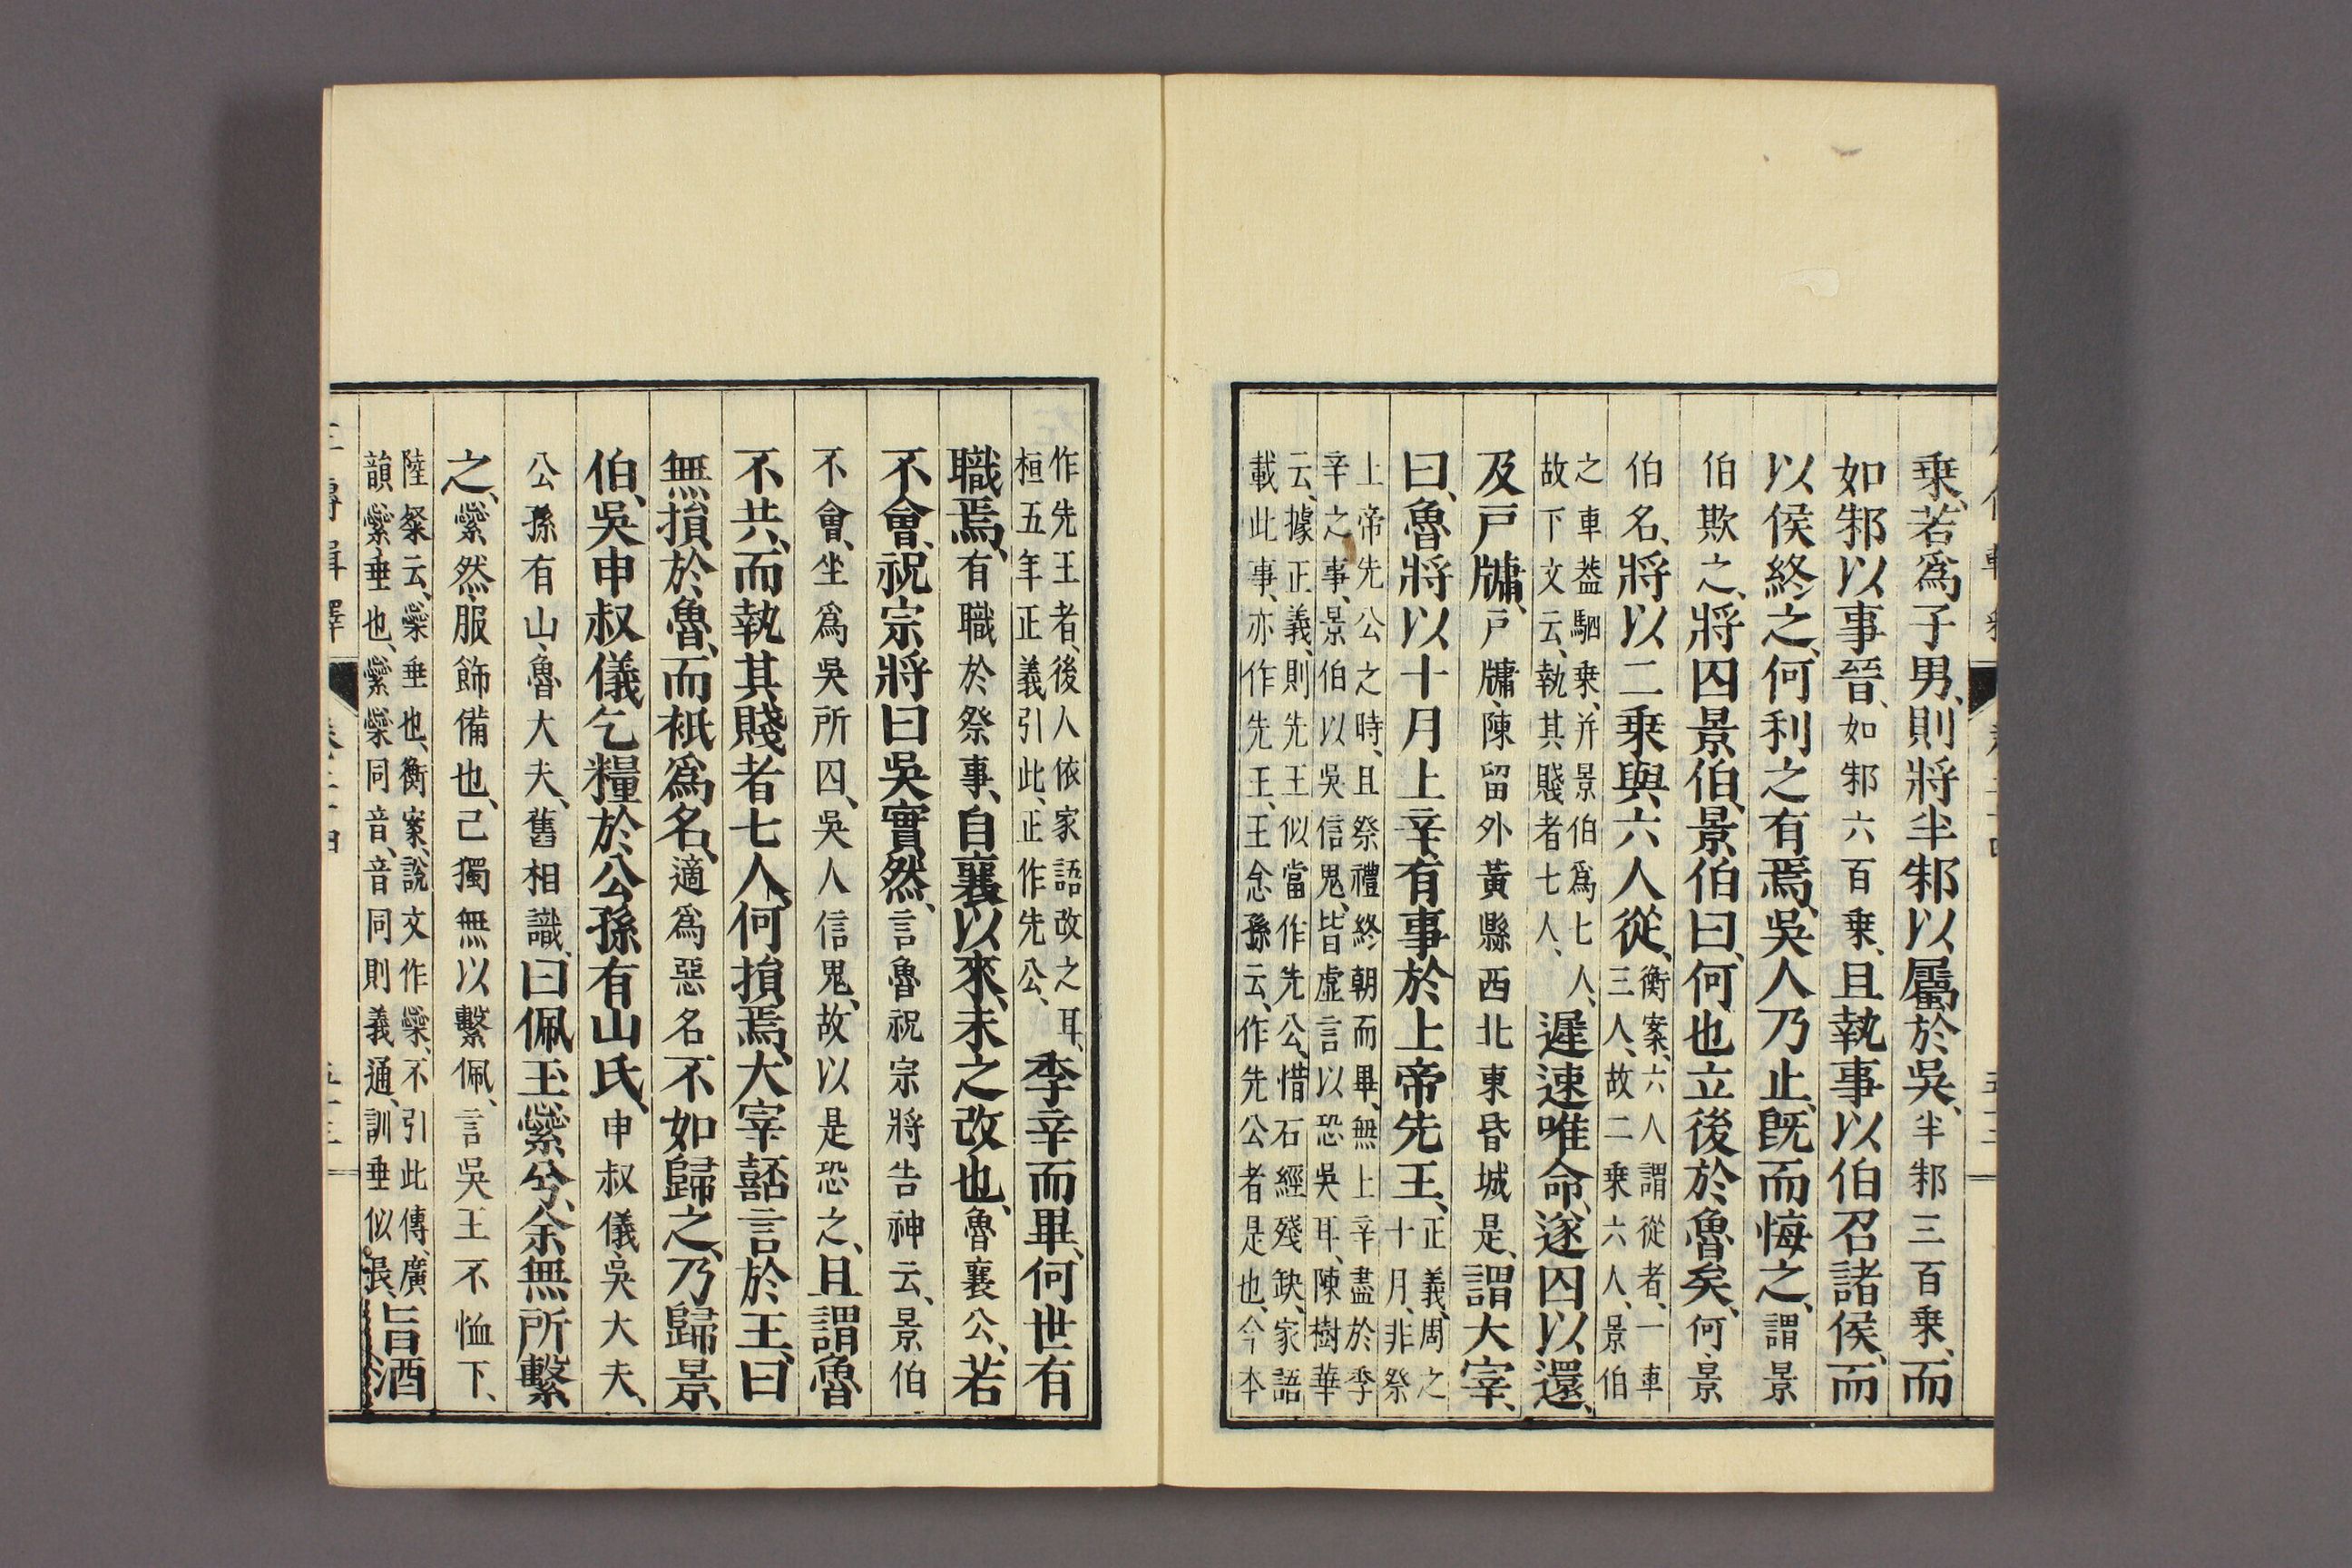 乗、若爲子男、則將半邾以屬於吳、半邾三百乗、而
如邾以事晉、如邾六百乗、且執事以伯召諸侯、而
以侯終之、何利之有焉、吳人乃止、既而悔之、謂景
伯欺之、將囚景伯、景伯曰、何也立後於魯矣、何、景
伯名、將以二乗與六人從、衡案、六人謂從者、一車
三人、故二乗六人、景伯
之車葢駟乗、并景伯爲七人、
故下文云、執其賤者七人、遲速唯命、遂囚以還、
及戸牖、戸牖、陳留外黃縣西北東昏城是、謂大宰、
曰、魯將以十月上辛、有事於上帝先王、正義、周之
十月、非祭
上帝先公之時、且祭禮終朝而畢、無上辛盡於季
辛之事、景伯以吳信鬼、皆虛言以恐吳耳、陳樹華
云、據正義、則先王似當作先公、惜石經殘缺、家語
載此事、亦作先王、王念孫云、作先公者是也、今本
作先王者、後人依家語改之耳、
桓五年正義引此、正作先公、季辛而畢、何世有
職焉、有職於祭事、自襄以來、未之改也、魯襄公、若
不會、祝宗將曰吳實然、言魯祝宗將告神云、景伯
不會、坐爲吳所囚、吳人信鬼、故以是恐之、且謂魯
不共、而執其賤者七人、何損焉、大宰嚭言於王、曰
無損於魯、而祇爲名、適爲惡名不如歸之、乃歸景
伯、吳申叔儀乞糧於公孫有山氏、申叔儀吳大夫、
公孫有山、魯大夫、舊相識、曰佩玉繠兮、余無所繫
之、繠然、服飾備也、己獨無以繫佩、言吳王不恤下、
陸粲云、橤垂也、衡案、說文作橤、不引此傳、廣
韻繠垂也、繠橤同音、音同則義通、訓垂似長、旨酒